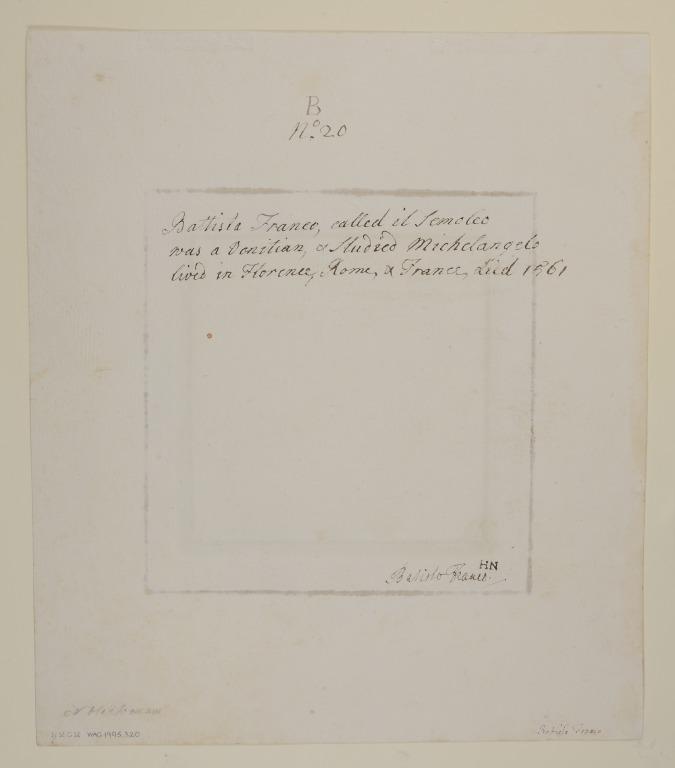 B
No. 20
Battista Franco, called il Semoleo
was a Venitian, & Studied Michelangelo
lived in Florence, Rome, & France, Died 1561
HN
Batista Franco.
WAG 1995.320
Batista Franco